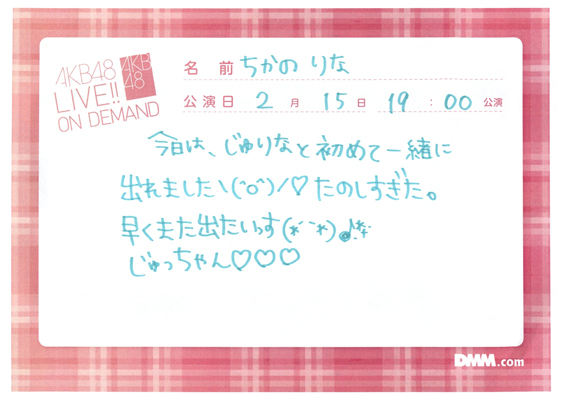 AKB48
LIVE!!
ON DEMAND
AKB
48
名前 ちかの りな
公演日 2月 15日 19:00 公演
今日は、じゅりなと初めて一緒に
出れました\(^o^)/♡たのしすぎた。
早くまた出たいっす(*´`*)♪*
じゅっちゃん♡♡♡
DMM.com